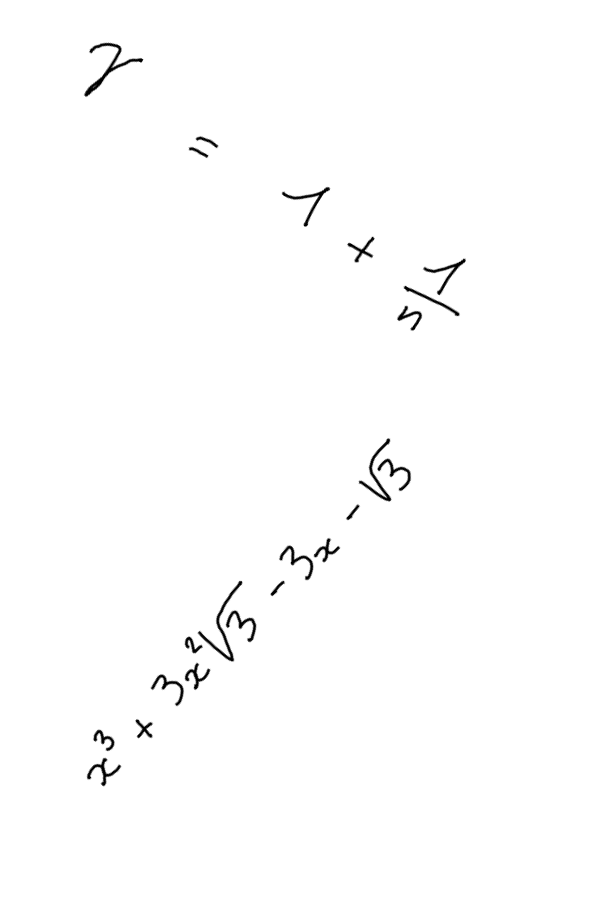 γ = 1 + 1/n
x³ + 3x²√3 - 3x - √3